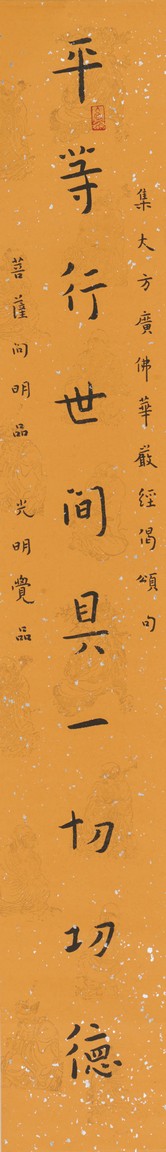 集大方廣佛華嚴經偈頌句
平等行世間具一切功德
菩薩問明品 光明覺品